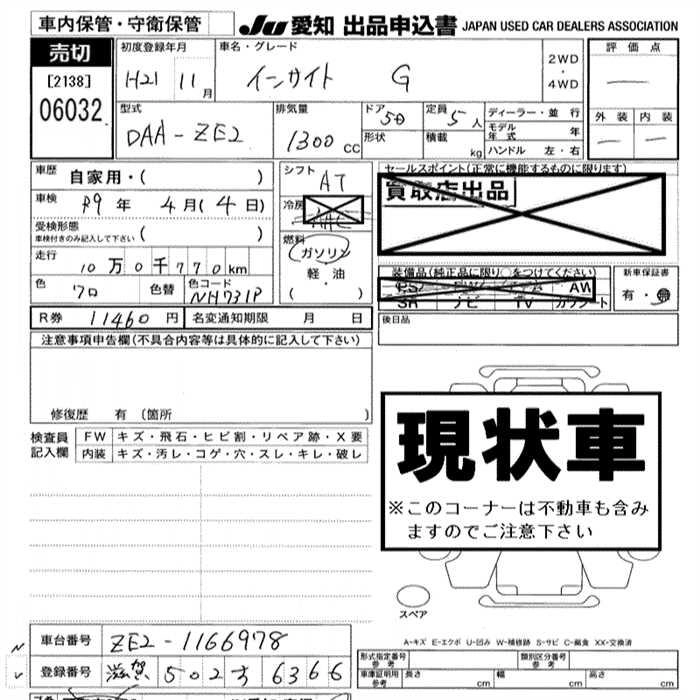 車内保管・守衛保管
JU 愛知 出品申込書 JAPAN USED CAR DEALERS ASSOCIATION
売切
[2138]
06032
初度登録年月
H21 11月
車名・グレード
インサイト G
2WD
・
4WD
評価点
外装 内装
型式
DAA-ZE2
排気量
1300 CC
ドア
5D
形状
定員
5人
積載
kg
ディーラー・並行
モデル年式 年
ハンドル 左・右
車歴
自家用・( )
車検
R9年 4月(4日)
受検形態
車検付きのみ記入して下さい ( )
走行
10万0千770km
色
クロ
色替
色コード
NH731P
シフト
AT
冷房
AAC
燃料
ガソリン
軽・油
( ・ )
セールスポイント(正常に機能するものに限ります)
買取店出品
装備品(純正品に限り○をつけてください)
PS AW
SR ナビ TV
新車保証書
有・無
R券 11460円
名変通知期限 月 日
後日品
注意事項申告欄(不具合内容等は具体的に記入して下さい)
修復歴 有 (箇所 )
検査員
記入欄
FW キズ・飛石・ヒビ割・リペア跡・X要
内装 キズ・汚レ・コゲ・穴・スレ・キレ・破レ
現状車
※このコーナーは不動車も含み
ますのでご注意下さい
スペア
A-キズ E-エクボ U-凹み W-補修跡 S-サビ C-腐食 XX-交換済
車台番号 ZE2-1166978
登録番号 滋賀 502す 6366
形式指定番号
参考
類別区分番号
参考
車庫証明用
参考
長さ cm
幅 cm
高さ cm